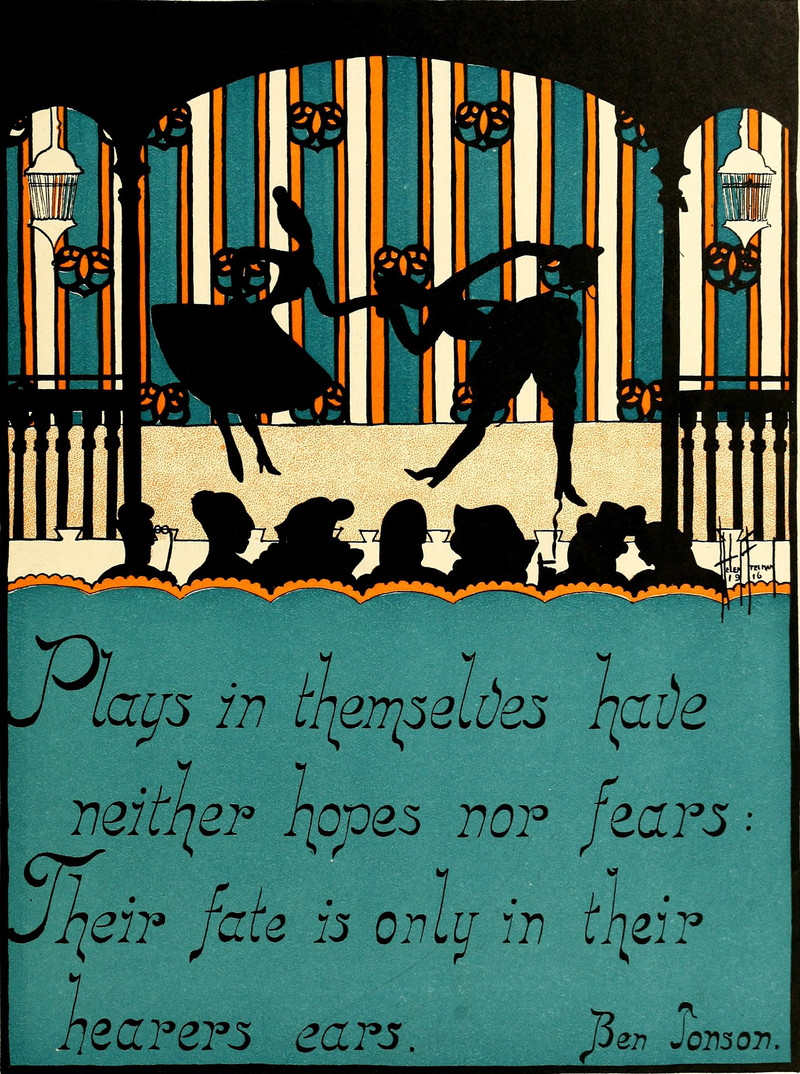 Plays in themselves have
neither hopes nor fears:
Their fate is only in their
hearers ears.
Ben Jonson.
19 16